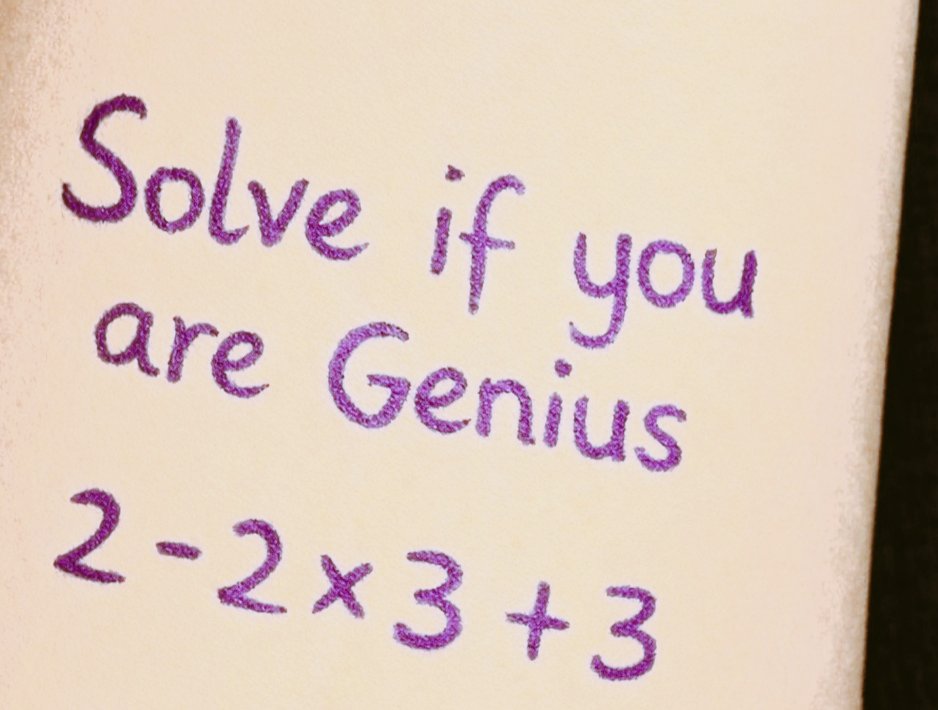 Solve if you
are Genius
2-2×3+3